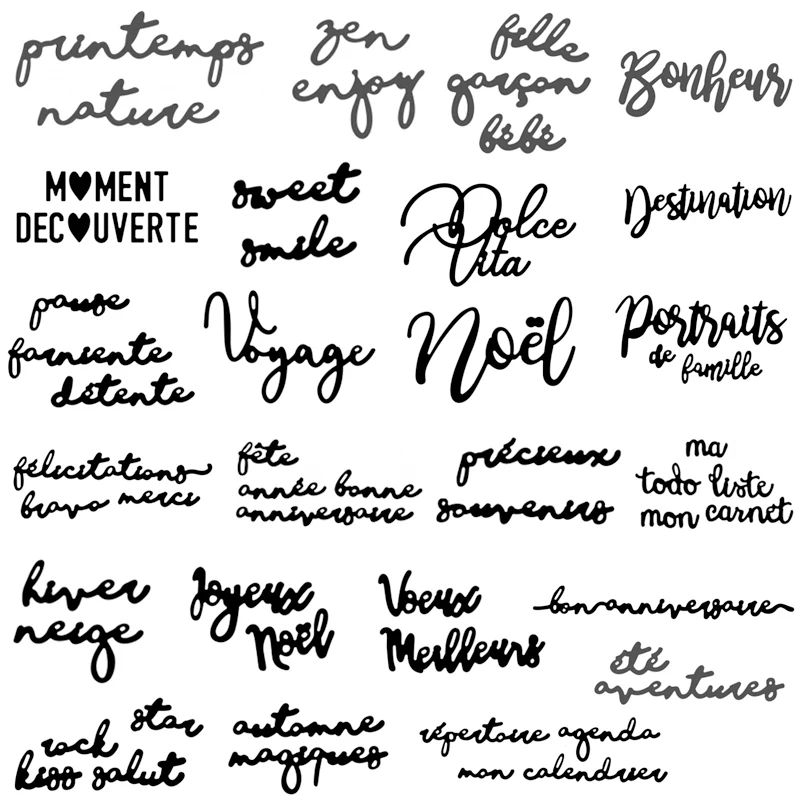 printemps
nature
zen
enjoy
fille
garçon
bébé
Bonheur
MOMENT
DECOUVERTE
sweet
smile
Dolce
Vita
Destination
pause
farniente
détente
Voyage
Noël
Portraits
de famille
félicitations
bravo merci
fête
année bonne
anniversaire
précieux
souvenirs
ma
todo liste
mon carnet
hiver
neige
Joyeux
Noël
Voeux
Meilleurs
bon anniversaire
été
aventures
star
rock
kiss salut
automne
magiques
répertoire agenda
mon calendrier